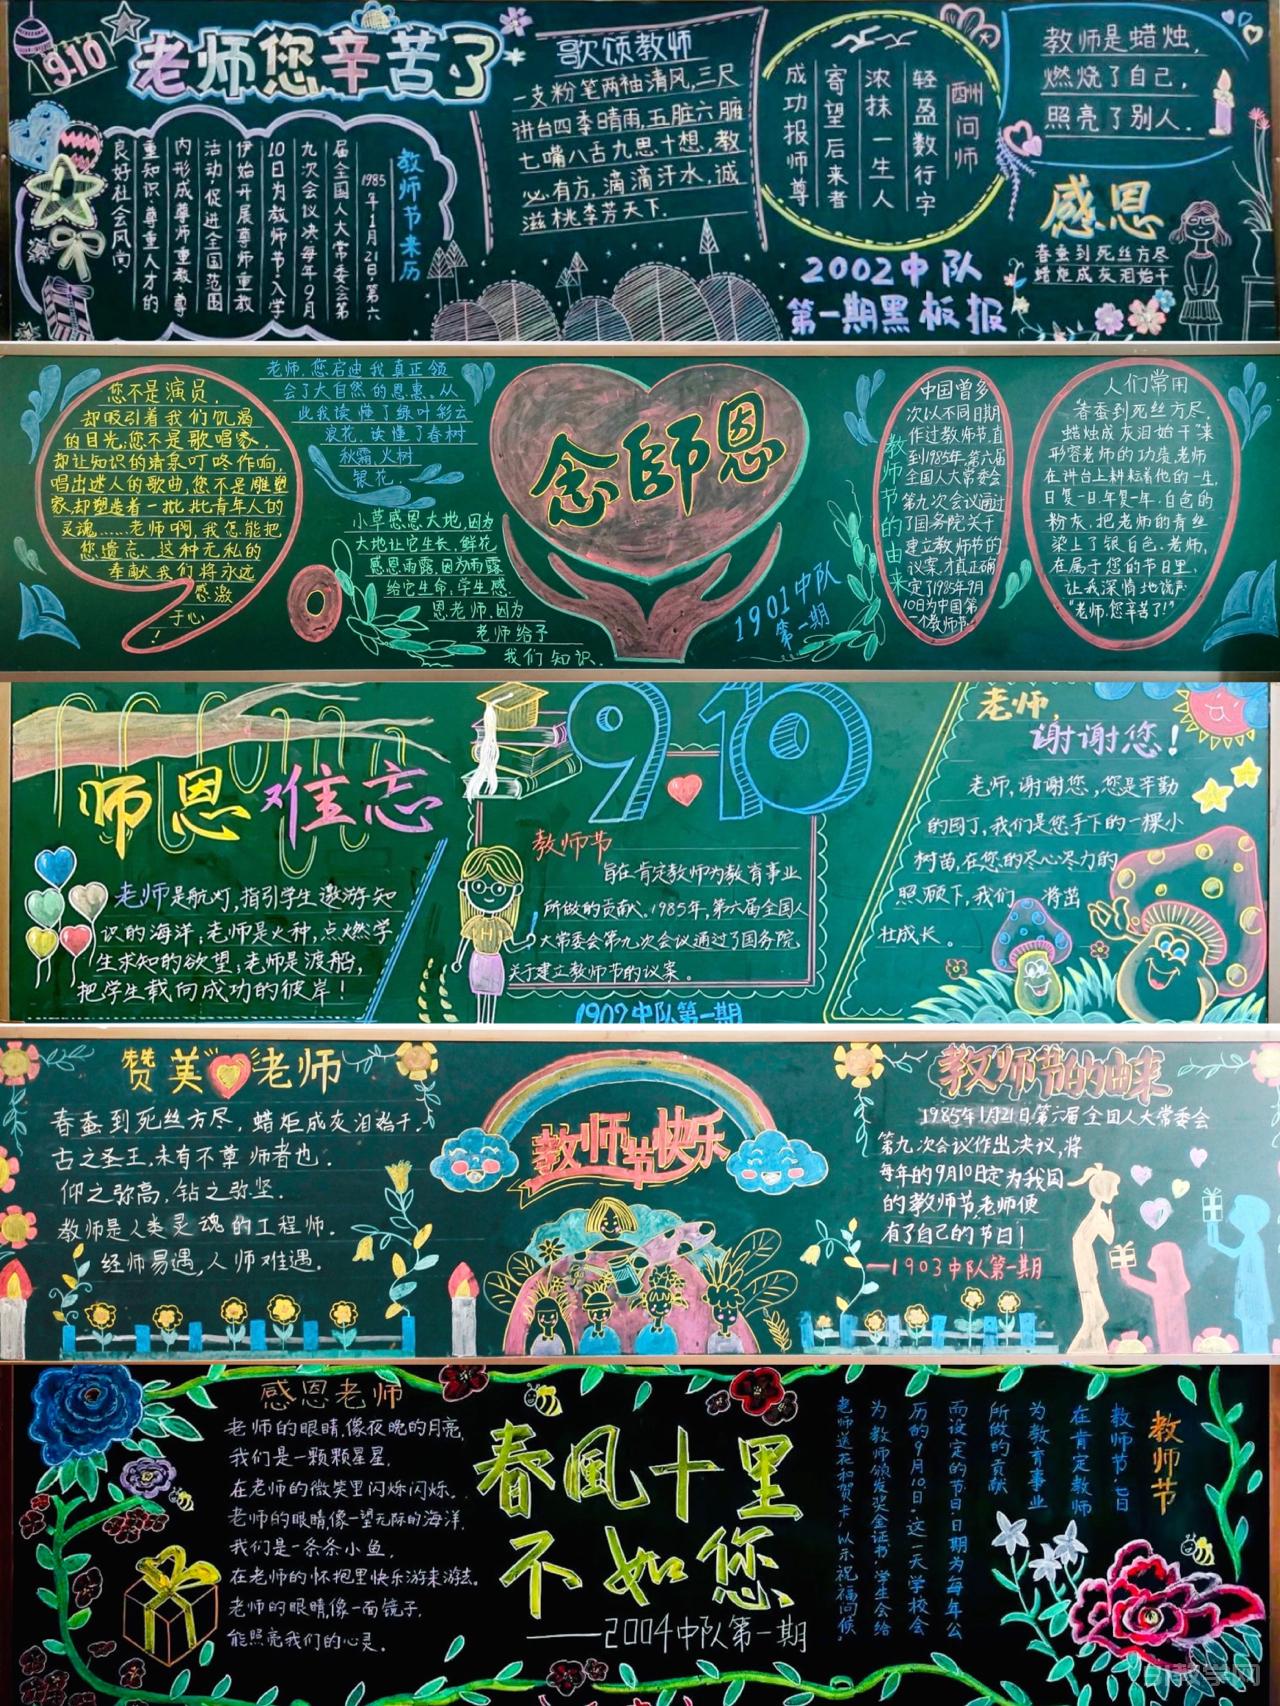 9.10
老师您辛苦了
教师节来历
1985年1月21日,第六
届全国人大常委会第
九次会议决:每年9月
10日为教师节,入学
伊始开展尊师重教
活动,促进全国范围
内形成尊师重教,尊
重知识,尊重人才的
良好社会风尚.
歌颂教师
一支粉笔两袖清风,三尺
讲台四季晴雨,五脏六腑
七嘴八舌九思十想,教
心有方,滴滴汗水,诚
滋桃李芳天下.
酬问师
轻盈数行字
浓抹一生人
寄望后来者
成功报师尊
教师是蜡烛,
燃烧了自己,
照亮了别人.
感恩
春蚕到死丝方尽
蜡炬成灰泪始干
2002中队
第一期黑板报
您不是演员,
却吸引着我们饥渴
的目光;您不是歌唱家,
却让知识的清泉叮咚作响,
唱出迷人的歌曲,您不是雕塑
家,却塑造着一批批青年人的
灵魂……老师啊,我怎能把
您遗忘.这种无私的
奉献我们将永远
感激
于心
!
老师,您启迪我真正领
会了大自然的恩惠.从
此我读懂了绿叶彩云
浪花.读懂了春树
秋霜,火树
银花.
小草感恩大地,因为
大地让它生长,鲜花
感恩雨露,因为雨露
给它生命,学生感
恩老师,因为
老师给予
我们知识.
念師恩
1901中队
第一期
教师节的由来
中国曾多
次以不同日期
作过教师节,直
到1985年,第六届
全国人大常委会
第九次会议通过
了国务院关于
建立教师节的
议案,才真正确
定了1985年9月
10日为中国第
一个教师节.
人们常用
"春蚕到死丝方尽,
蜡烛成灰泪始干"来
形容老师的功绩,老师
在讲台上耕耘着他的一生,
日复一日,年复一年.白色的
粉灰,把老师的青丝
染上了银白色.老师,
在属于您的节日里,
让我深情地说声
"老师,您辛苦了!"
师恩难忘
老师是航灯,指引学生遨游知
识的海洋,老师是火种,点燃学
生求知的欲望,老师是渡船,
把学生载向成功的彼岸!
9.10
教师节
旨在肯定教师为教育事业
所做的贡献.1985年,第六届全国人
大常委会第九次会议通过了国务院
关于建立教师节的议案。
1902中队第一期
老师,
谢谢您!
老师,谢谢您,您是辛勤
的园丁,我们是您手下的一棵小
树苗,在您的尽心尽力的
照顾下,我们 将茁
壮成长。
赞美老师
春蚕到死丝方尽,蜡炬成灰泪始干.
古之圣王,未有不尊师者也.
仰之弥高,钻之弥坚.
教师是人类灵魂的工程师.
经师易遇,人师难遇.
教师节快乐
教师节的由来
1985年1月21日第六届全国人大常委会
第九次会议作出决议,将
每年的9月10日定为我国
的教师节,老师便
有了自己的节日!
—1903中队第一期
感恩老师
老师的眼睛,像夜晚的月亮,
我们是一颗颗星星,
在老师的微笑里闪烁闪烁.
老师的眼睛,像一望无际的海洋,
我们是一条条小鱼,
在老师的怀抱里快乐游来游去.
老师的眼睛,像一面镜子,
能照亮我们的心灵.
春風十里
不如您
——2004中队第一期
教师节
教师节,旨
在肯定教师
为教育事业
所做的贡献
而设定的节日,日期为每年公
历的9月10日。这一天学校会
为教师颁发奖金证书,学生会给
老师送花和贺卡,以示祝福问候。